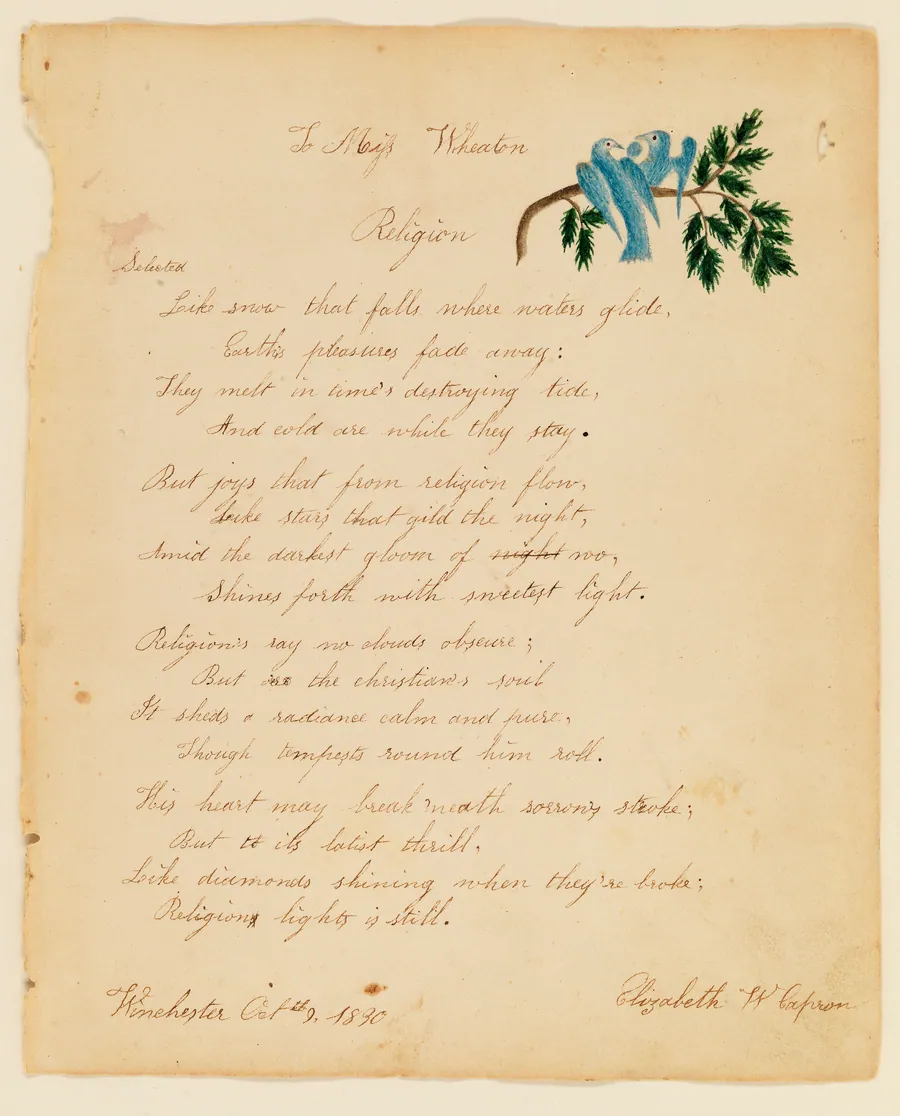 To Miss Wheaton
Religion
Selected
Like snow that falls where waters glide,
Earth's pleasures fade away:
They melt in time's destroying tide,
And cold are while they stay.
But joys that from religion flow,
Like stars that gild the night,
Amid the darkest gloom of night wo,
Shines forth with sweetest light.
Religion's ray no clouds obscure;
But the christian's soul
It sheds a radiance calm and pure,
Though tempests round him roll.
His heart may break 'neath sorrow's stroke;
But it its latist thrill,
Like diamonds shining when they're broke;
Religions lights is still.
Winchester Oct th 9, 1830
Elizabeth W Capron